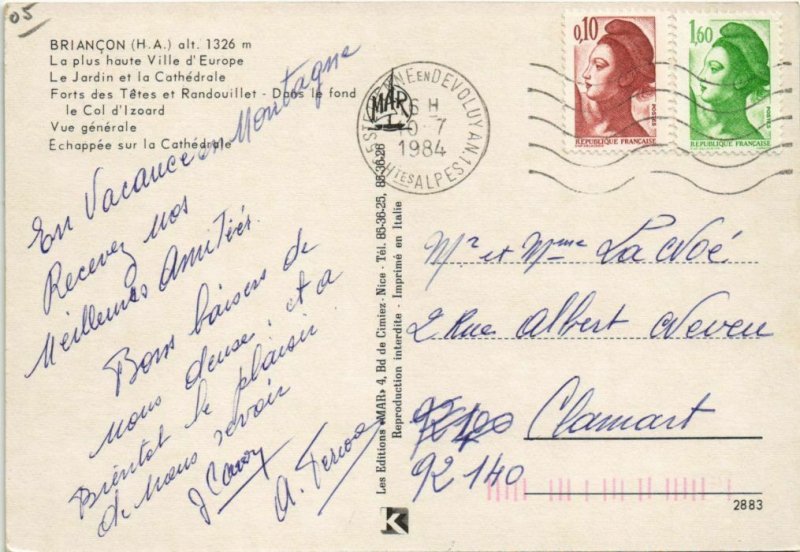 05
BRIANÇON (H.A.) alt. 1326 m
La plus haute Ville d'Europe
Le Jardin et la Cathédrale
Forts des Têtes et Randouillet - Dans le fond
le Col d'Izoard
Vue générale
Echappée sur la Cathédrale
En Vacance en Montagne
Recevez nos
Meilleures Amitiés.
Bons baisers de
nous deuse, et a
Bientot le plaisir
de nous revoir
MAR
6 H
0-7
1984
EN DEVOLUY
HTES ALPES
0,10
POSTES
REPUBLIQUE FRANÇAISE
1,60
POSTES
REPUBLIQUE FRANÇAISE
Les Editions «MAR» 4, Bd de Cimiez - Nice - Tél. 85-36-25, 85-36-26
Reproduction interdite - Imprimé en Italie
Mr et Mme La Noé
2 Rue Albert Neveu
Clamart
92140
K
2883